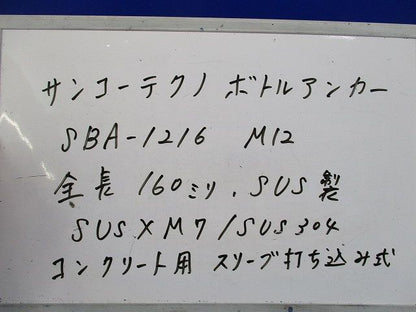 サンコーテクノ ボトルアンカー
SBA-1216 M12
全長 160ミリ、SUS製
SUSXM7/SUS304
コンクリート用 スリーブ打ち込み式